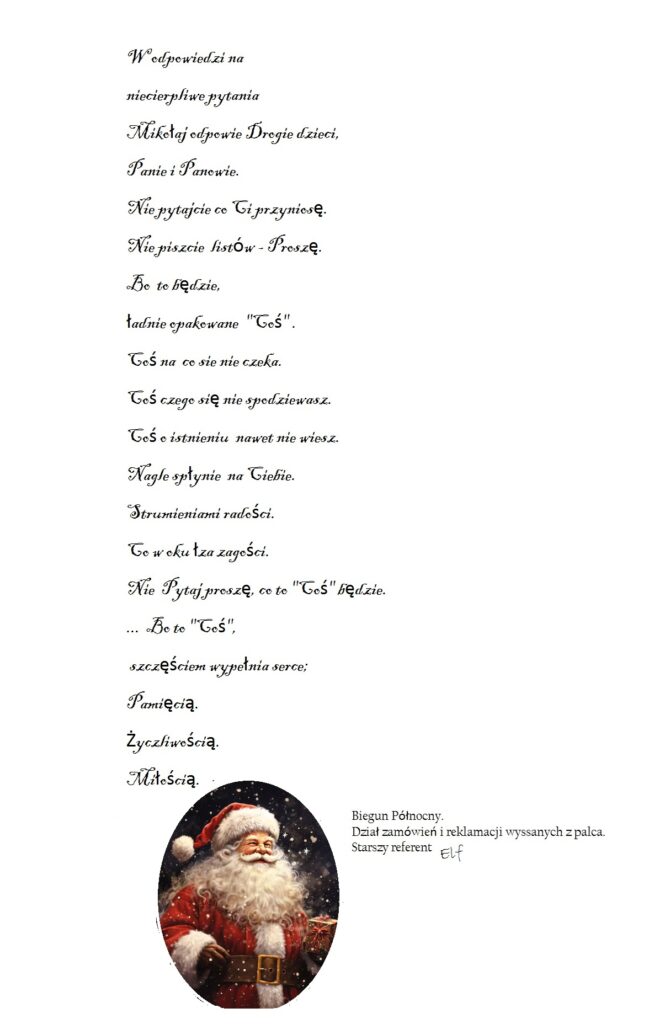 W odpowiedzi na
niecierpliwe pytania
Mikołaj odpowie Drogie dzieci,
Panie i Panowie.
Nie pytajcie co Ci przyniosę.
Nie piszcie listów - Proszę.
Bo to będzie,
ładnie opakowane "Coś" .
Coś na co sie nie czeka.
Coś czego się nie spodziewasz.
Coś o istnieniu nawet nie wiesz.
Nagle spłynie na Ciebie.
Strumieniami radości.
Co w oku łza zagości.
Nie Pytaj proszę, co to "Coś" będzie.
... Bo to "Coś",
szczęściem wypełnia serce;
Pamięcią.
Życzliwością.
Miłością.
Biegun Północny.
Dział zamówień i reklamacji wyssanych z palca.
Starszy referent Elf